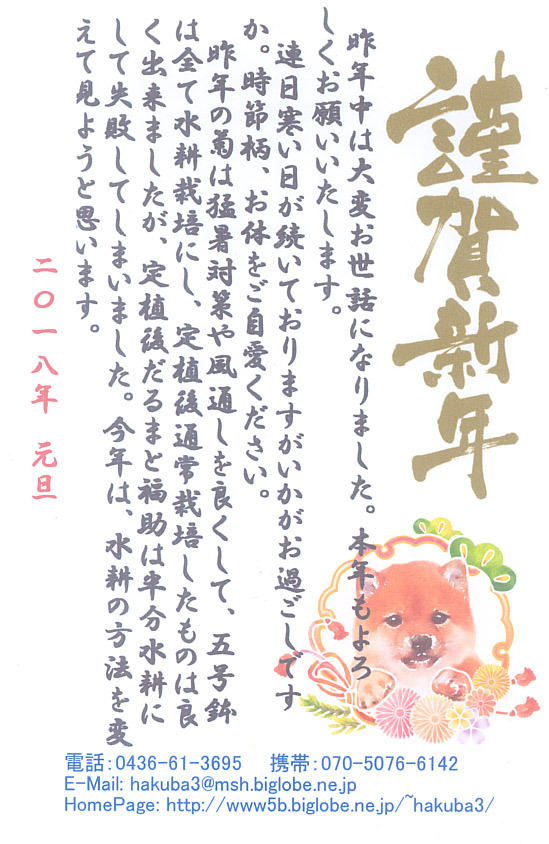 謹賀新年
昨年中は大変お世話になりました。本年もよろ
しくお願いいたします。
連日寒い日が続いておりますがいかがお過ごしです
か。時節柄、お体をご自愛ください。
昨年の菊は猛暑対策や風通しを良くして、五号鉢
は全て水耕栽培にし、定植後通常栽培したものは良
く出来ましたが、定植後だるまと福助は半分水耕に
して失敗してしまいました。今年は、水耕の方法を変
えて見ようと思います。
二〇一八年 元旦
電話：0436-61-3695 携帯：070-5076-6142
E-Mail: hakuba3@msh.biglobe.ne.jp
HomePage: http://www5b.biglobe.ne.jp/~hakuba3/